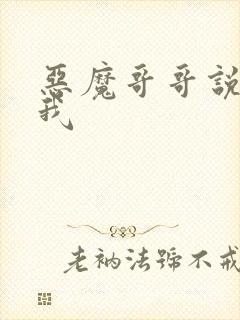 惡魔哥哥說
我
老衲法號不戒